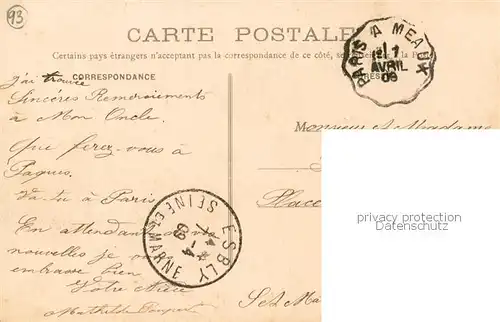 93
CARTE POSTALE
Certains pays étrangers n'acceptant pas la correspondance de ce côté, se
CORRESPONDANCE
PARIS A MEAUX
1
AVRIL
09
J'ai trouvé
Sincères Remerciements
à Mon Oncle.
Que ferez-vous à
Pâques.
Va-tu à Paris
En attendant de vos
nouvelles je vous
embrasse bien
Votre Nièce
Mathilde
Monsieur et Madame
Place
S et Ma
ESBLY
SEINE ET MARNE
7-4
09
privacy protection
Datenschutz